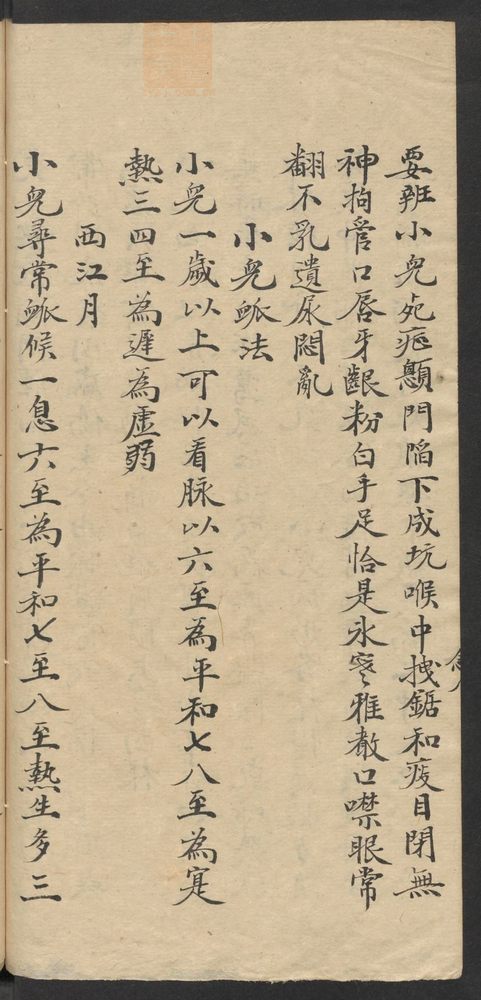 要辨小児死症顖門陷下成坑喉中拽鋸和痰目閉無
神拘管口唇牙齦粉白手足恰是氷寒雅教口噤眼常
翻不乳遺尿悶亂
小児脈法
小児一歲以上可以看脉以六至為平和七八至為寔
熱三四至為遲為虛弱
西江月
小児尋常脈候一息六至為平和七至八至熱生多三